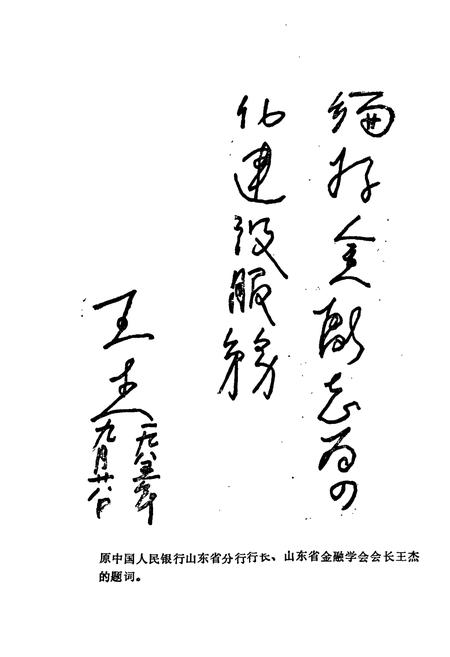 编好金融志为四
化建设服務
王杰
一九八五年
九月廿八日
原中国人民银行山东省分行行长、山东省金融学会会长王杰
的题词。